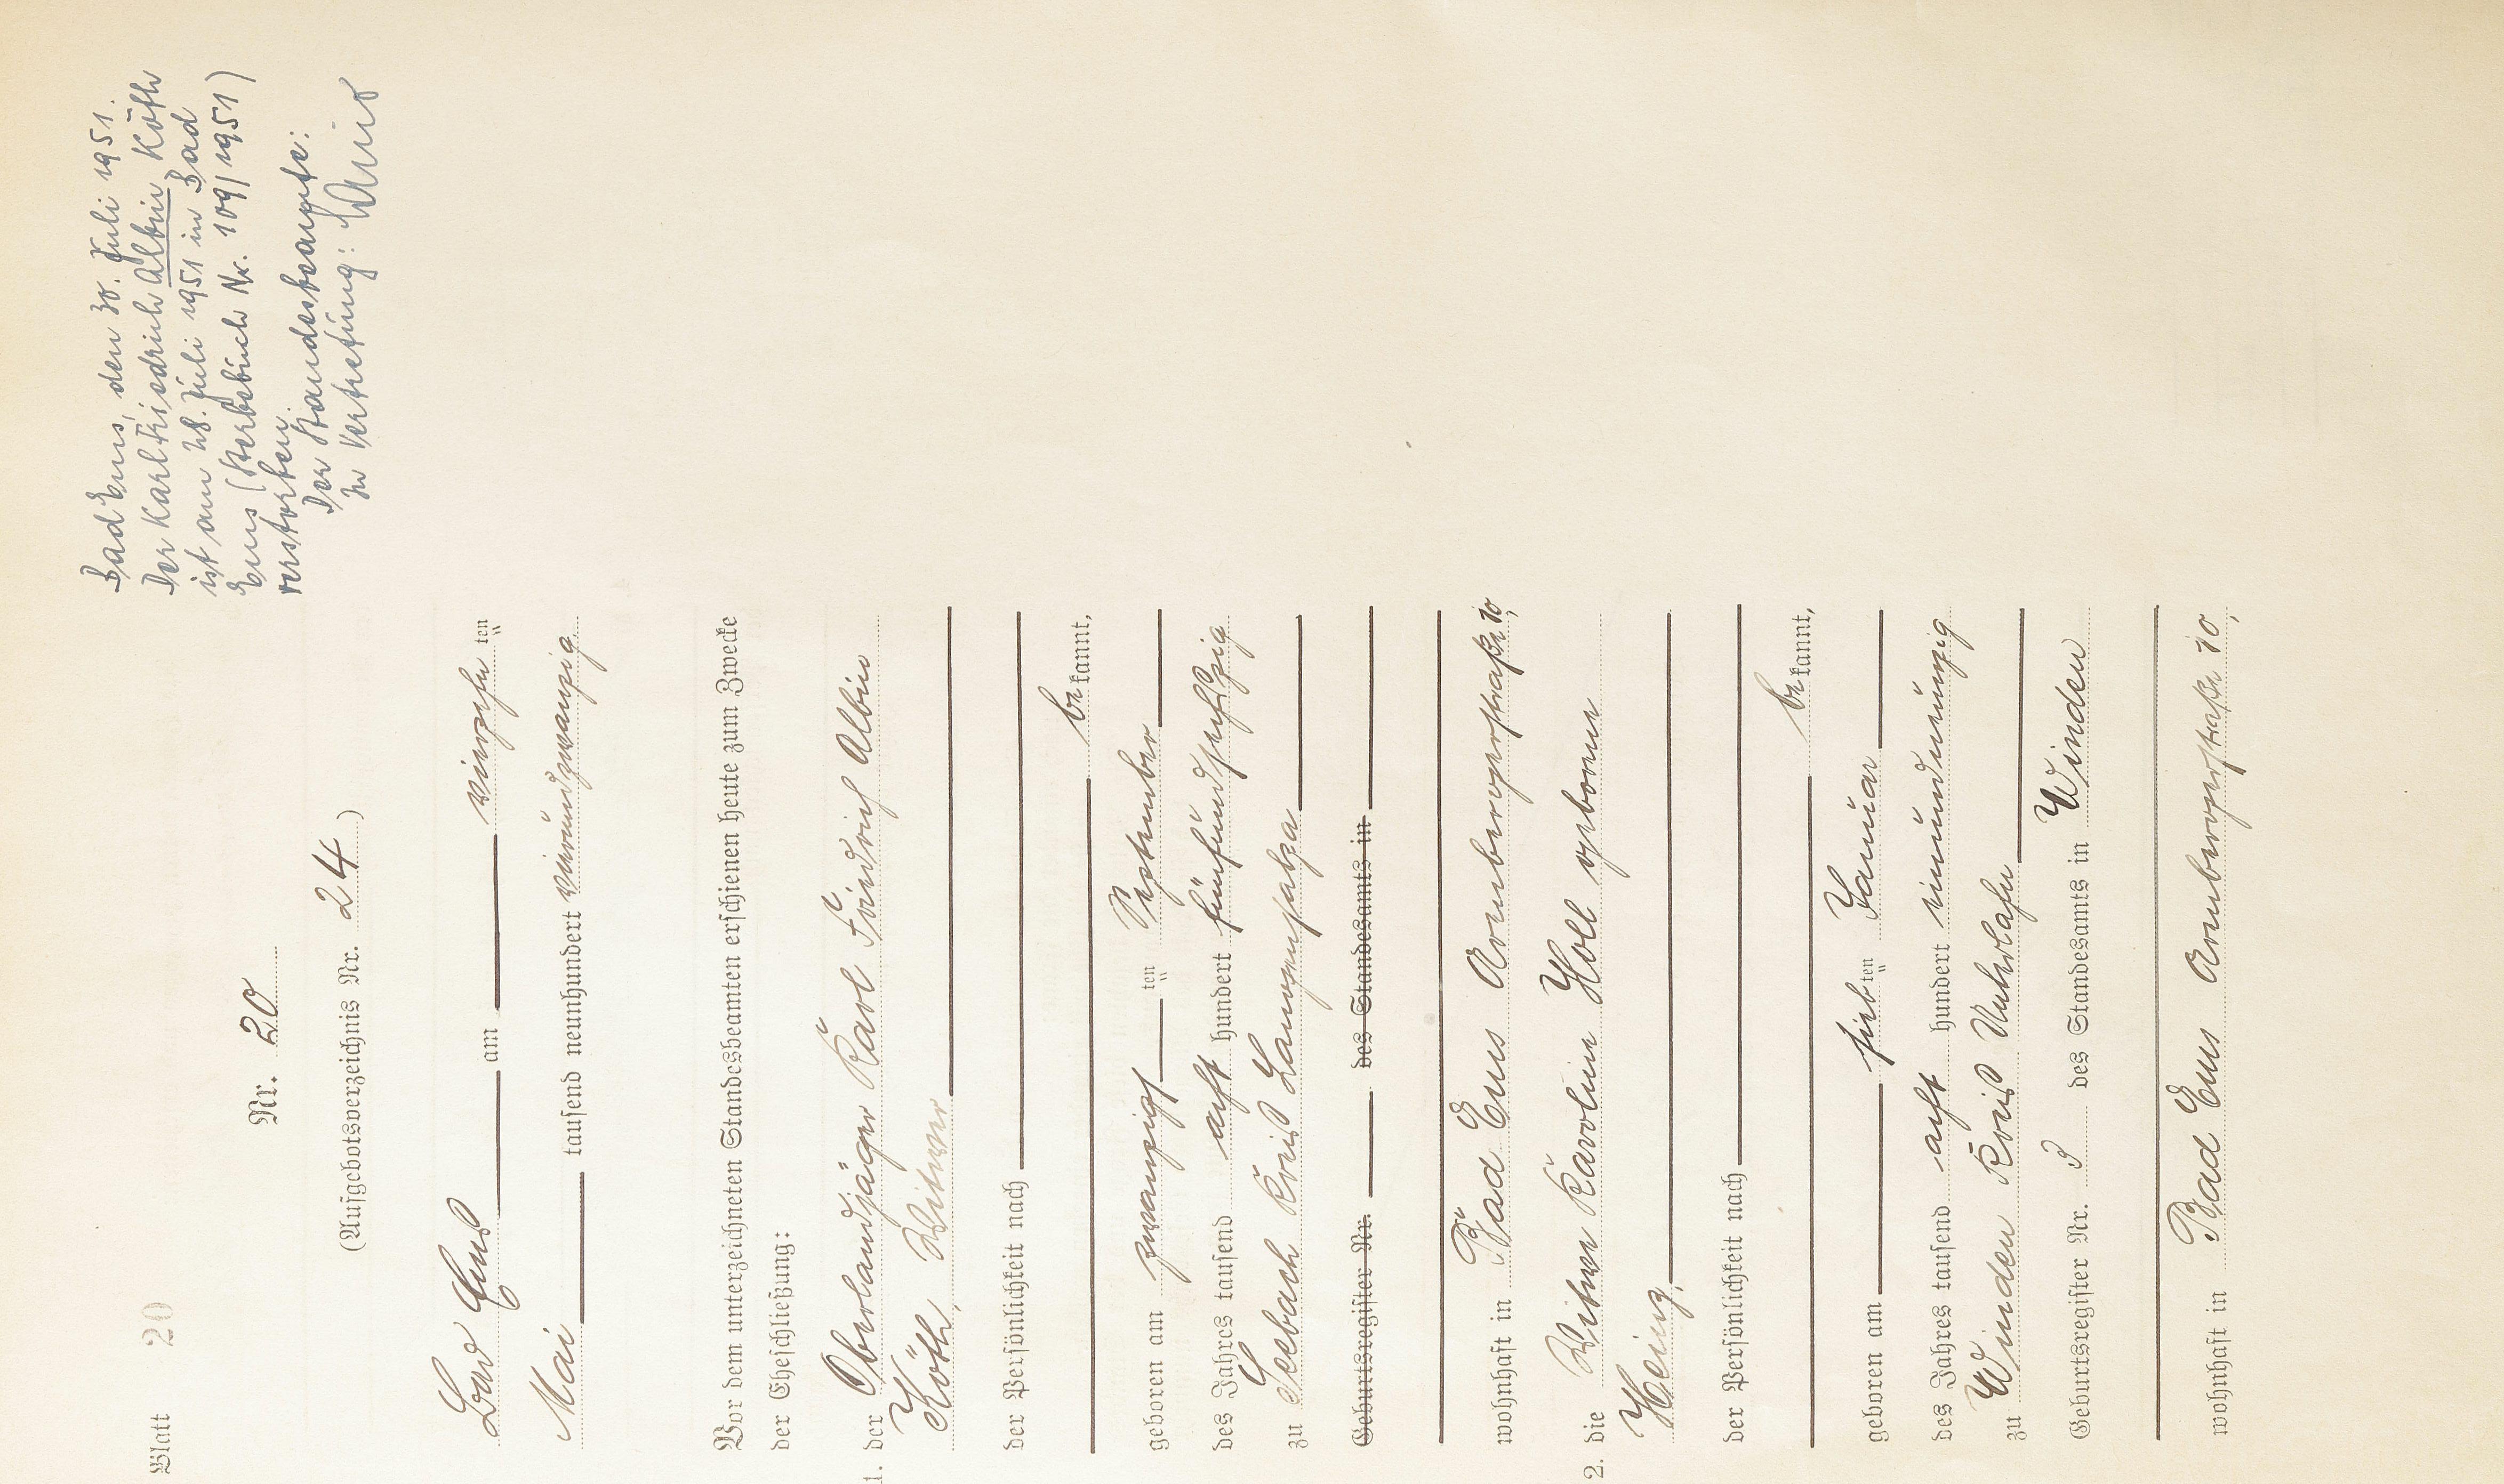 Blatt 20
Nr. 20
(Aufgebotsverzeichnis Nr. 24)
Bad Ems, den 30. Juli 1951.
Der Karl Friedrich Albin Köth
ist am 28. Juli 1951 in Bad
Ems (Sterbebuch Nr. 109/1951)
verstorben.
Der Standesbeamte:
In Vertretung:
Bad Ems am vierzehn ten
Mai tausend neunhundert vierundzwanzig
Vor dem unterzeichneten Standesbeamten erschienen heute zum Zwecke
der Eheschließung:
1. der Oberlandjäger Karl Friedrich Albin
Köth, Witwer
der Persönlichkeit nach
be kannt,
geboren am zwanzigst ten September
des Jahres tausend acht hundert fünfundsechszig
zu Seebach Kreis Langensalza
Geburtsregister Nr. des Standesamts in
wohnhaft in Bad Ems Arenbergerstraße 10,
2. die Witwe Karoline Holl geborene
Heinz,
der Persönlichkeit nach
be kannt,
geboren am sieb ten Januar
des Jahres tausend acht hundert einundneunzig
zu Winden Kreis Unterlahn
Geburtsregister Nr. des Standesamts in Winden
wohnhaft in Bad Ems Arenbergerstraße 10,